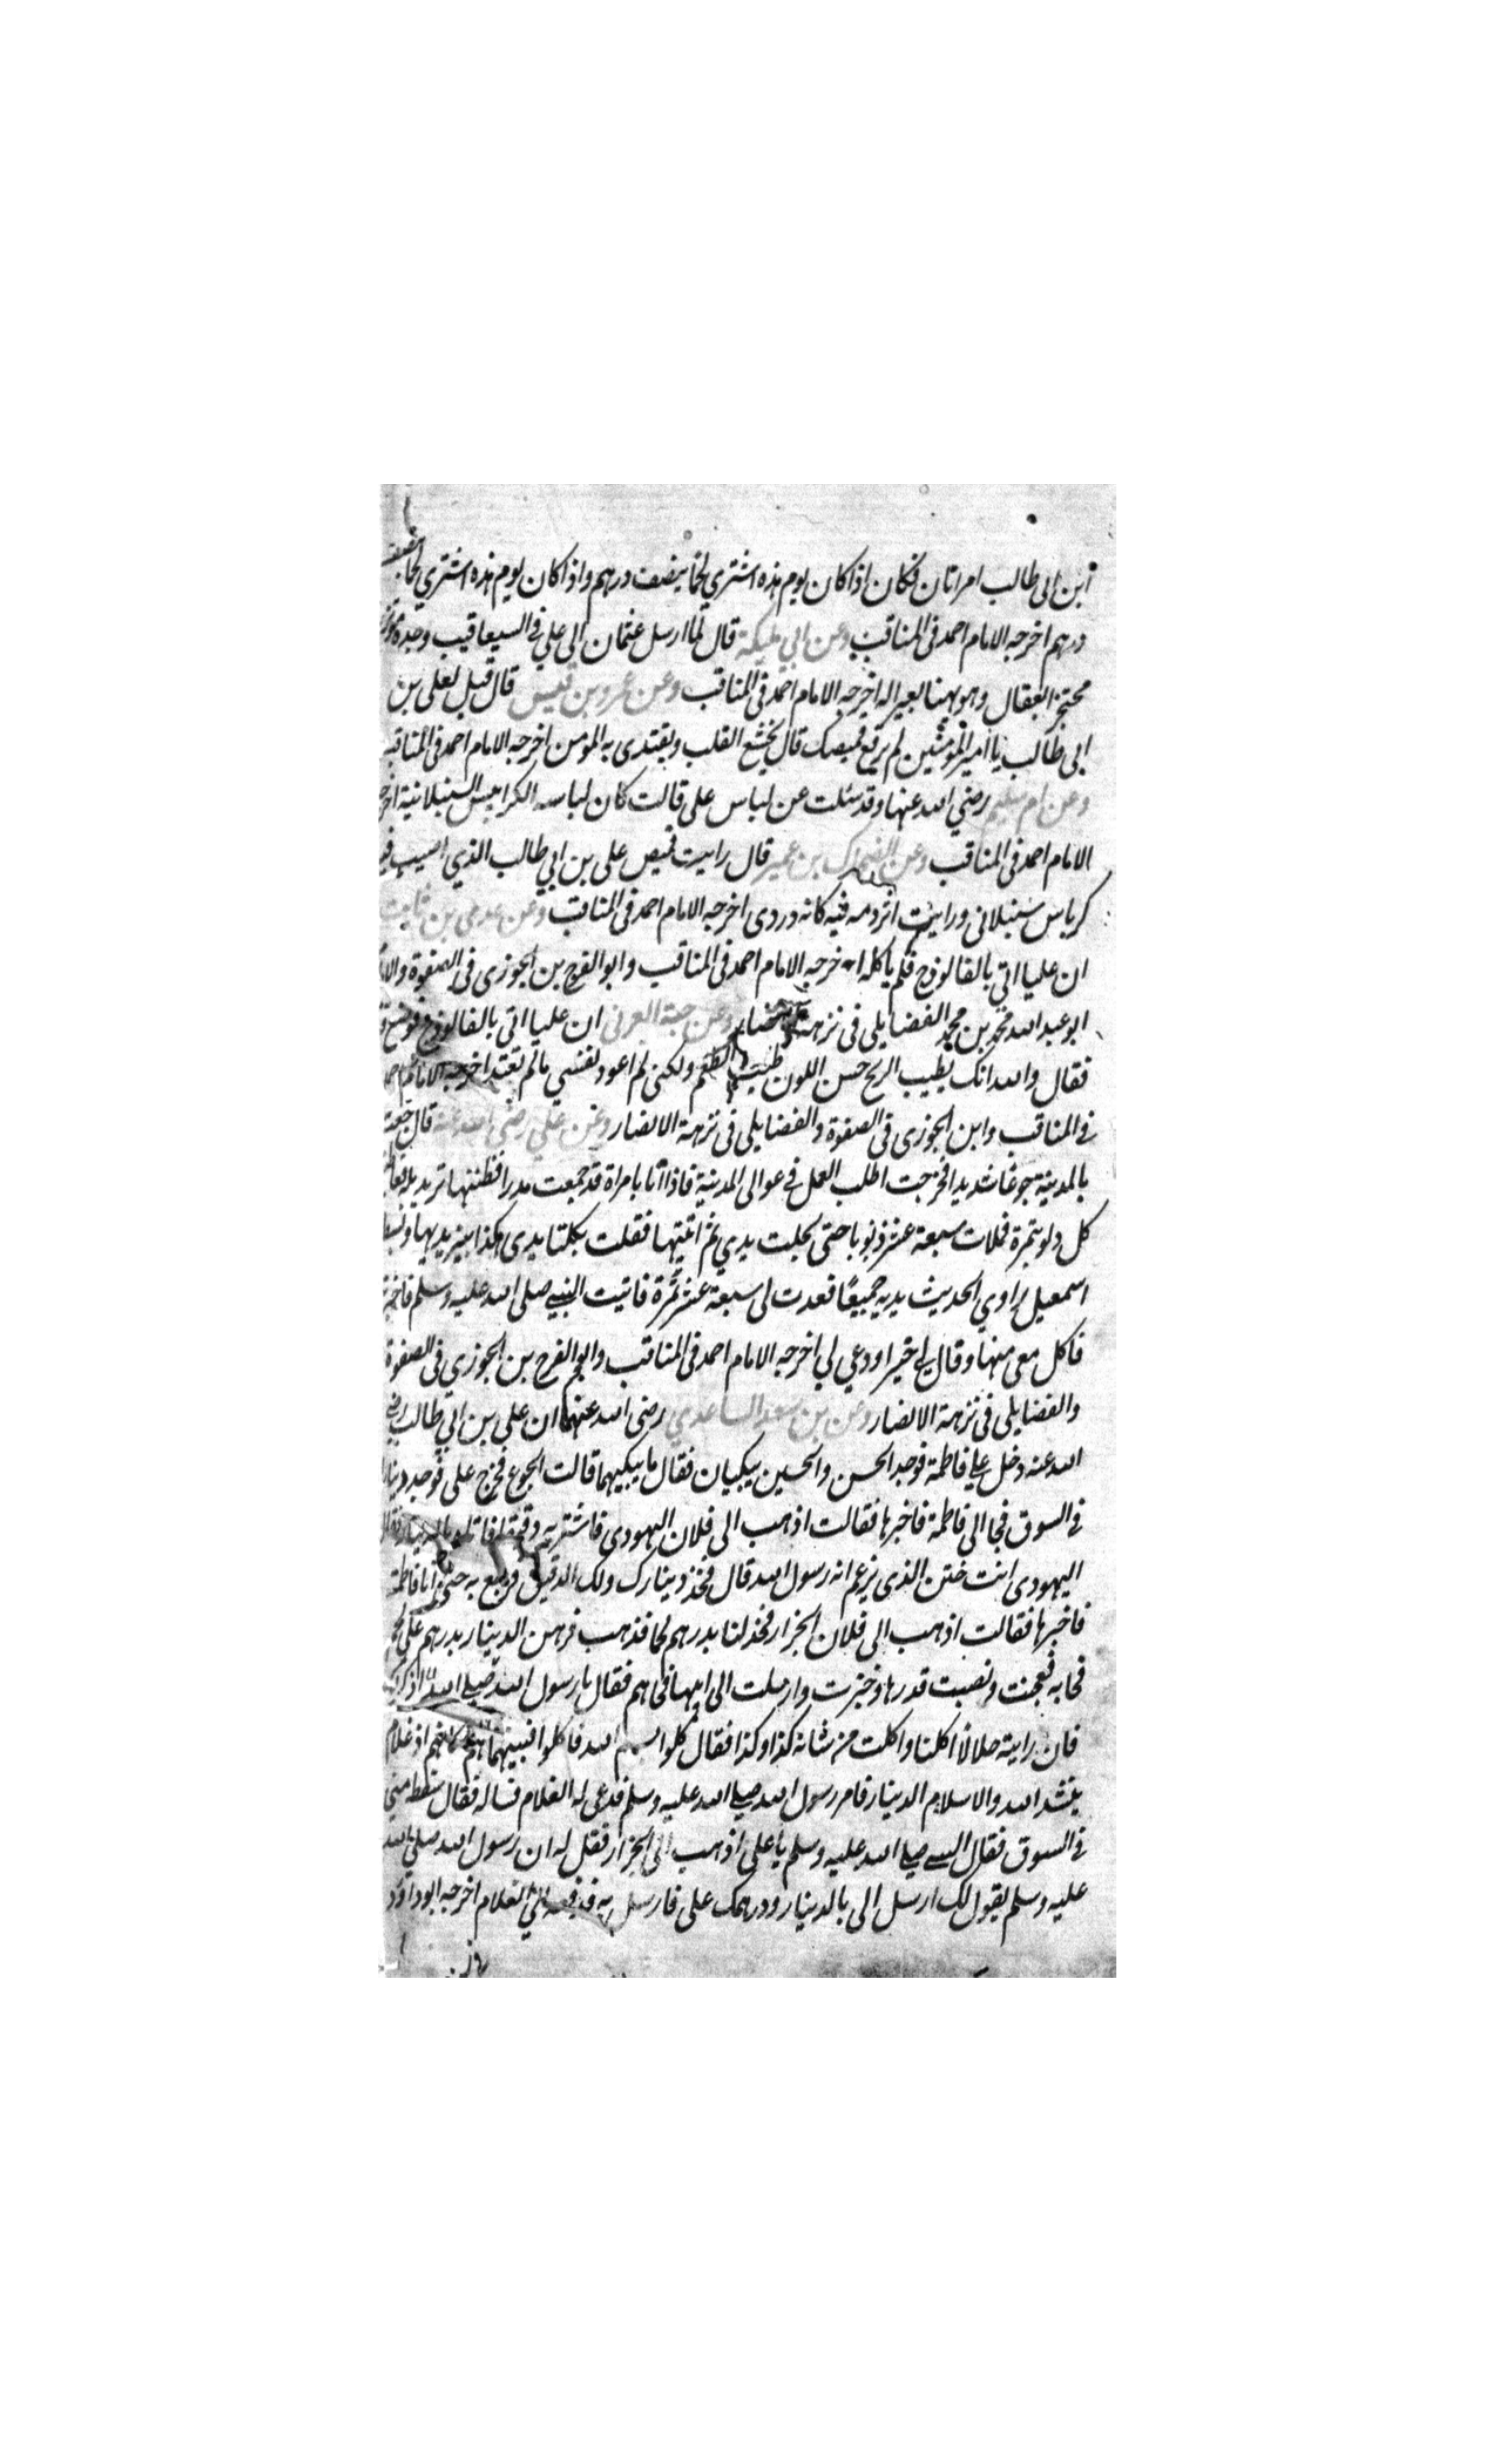 ابن ابى طالب امراتان فكان اذا كان يوم هذه اشتري لحما بنصف درهم واذا كان يوم هذه اشتري لحما بنصف
درهم اخرجه الامام احمد فى المناقب وعن ابي مليكة قال لما ارسل عثمان الى علي في السيعاقيب وجده
محتجز العقال وهو يهنا بعير اله اخرجه الامام احمد فى المناقب وعن عمرو بن قيس قال قيل لعلى بن
ابى طالب يا امير المؤمنين لم ترقع قميصك قال يخشع القلب ويقتدى به المومن اخرجه الامام احمد فى المناقب
وعن ام سليم رضي الله عنها وقد سئلت عن لباس على قالت كان لباسه الكرابيس السنبلانية
الامام احمد فى المناقب وعن الضحاك بن عمير قال رايت قميص على بن ابي طالب الذي اصيب فيه
كرباس سنبلانى ورايت اثر دمه فيه كانه دردى اخرجه الامام احمد فى المناقب وعن عدى بن ثابت
ان عليا اتي بالفالوذج فلم ياكله اخرجه الامام احمد فى المناقب وابو الفرج بن الجوزى فى الصفوة
ابو عبد الله محمد بن محمد الفضايلى فى نزهة وعن حبة العرنى ان عليا اتى بالفالوذج فوضع
فقال والله انك لطيب الريح حسن اللون طيب الطعم ولكنى لم اعود نفسي ما لم تعتد اخرجه الامام
في المناقب وابن الجوزى فى الصفوة والفضايلى فى نزهة الابصار وعن علي رضى الله عنه قال جعت
بالمدينة جوعا شديدا فخرجت اطلب العمل في عوالى المدينة فاذا انا بامراة قد جمعت مدرا فظننتها تريد بله
كل دلو بتمرة فملات سبعة عشر ذنوبا حتى مجلت يدي ثم اتيتها فقلت بكلتا يدى هكذا بين يديها وبسط
اسمعيل راوي الحديث يديه جميعا فعدت لى سبعة عشر تمرة فاتيت النبي صلى الله عليه وسلم
فاكل معى منها وقال لي خيرا ودعي لي اخرجه الامام احمد فى المناقب وابو الفرج بن الجوزي فى الصفوة
والفضايلى فى نزهة الابصار وعن بن سعد الساعدي رضى الله عنهما ان على بن ابي طالب رضي
الله عنه دخل علي فاطمة فوجد الحسن والحسين يبكيان فقال ما يبكيهما قالت الجوع فخرج على فوجد دينارا
في السوق فجا الى فاطمة فاخبرها فقالت اذهب الى فلان اليهودى فاشتر به دقيقا
اليهودى انت ختن الذى يزعم انه رسول الله قال فخذ دينارك ولك الدقيق فرجع به حتى اتا فاطمة
فاخبرها فقالت اذهب الى فلان الجزار فخذ لنا بدرهم لحما فذهب فرهن الدينار بدرهم على لحم
فجا به فعجنت ونصبت قدرها وخبزت وارسلت الى ابيها فجاهم فقال يا رسول الله صلى الله
فان رايته حلالا اكلنا واكلت من شانه كذا وكذا فقال كلوا بسم الله فاكلوا فبينهما هم اذ غلام
ينشد الله والاسلام الدينار فامر رسول الله صلي الله عليه وسلم فدعى له الغلام فساله فقال سقط مني
في السوق فقال النبي صلي الله عليه وسلم يا على اذهب الى الجزار فقل له ان رسول الله صلى الله
عليه وسلم يقول لك ارسل الى بالدينار ودرهمك على فارسل به فدفعه الي الغلام اخرجه ابو داود